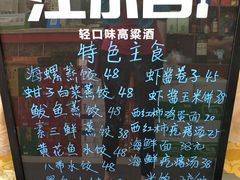 江小白
轻口味高粱酒
特色主食
海螺蒸饺 48
虾酱卷子 45
蚶子白菜蒸饺 48
虾酱玉米饼 38
鲅鱼蒸饺 48
西红柿鸡蛋面 20
素三鲜蒸饺 38
西红柿疙瘩汤 25
黄花鱼水饺 48
海鲜面 38元
八带水饺 48
海鲜疙瘩汤 38